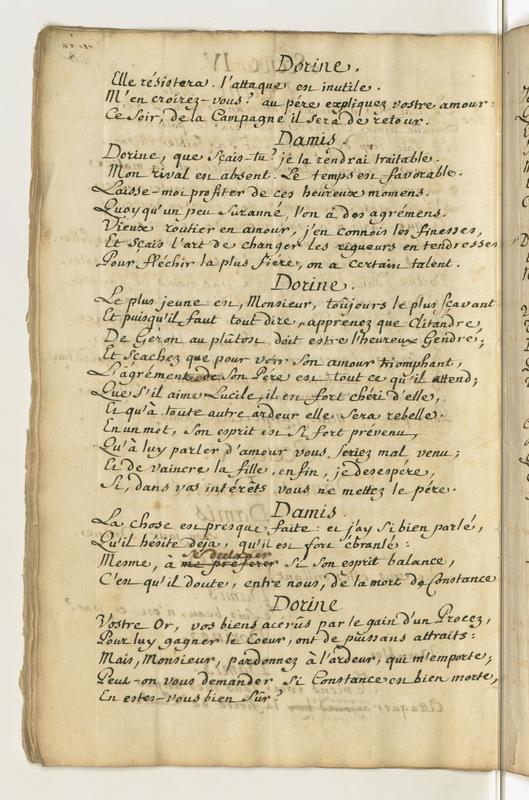 Dorine.
Elle résistera. l'attaque est inutile.
M'en croirez-vous? au pére expliquez vostre amour:
Ce Soir, de la Campagne il sera de retour.
Damis.
Dorine, que Sçais-tu? je la rendrai traitable.
Mon rival est absent. Le temps est favorable.
Laisse-moi profiter de ces heureux momens.
Quoy qu'un peu Suranné, l'on a des agrémens.
Vieux routier en amour, j'en connois les finesses,
Et Sçais l'art de changer les rigueurs en tendresses
Pour fléchir la plus fiére, on a certain talent.
Dorine.
Le plus jeune est, Monsieur, toûjours le plus sçavant
Et puisqu'il faut tout dire, apprenez que Clitandre,
De Geron au plûtost doit estre l'heureux Gendre;
Et Sçachez que pour voir Son amour triomphant,
L'agrément de Son Pére est tout ce qu'il attend;
Que S'il aime Lucile, il en est fort chéri d'elle,
Et qu'à toute autre ardeur elle Sera rebelle.
En un mot, Son esprit est Si fort prévenu,
Qu'à luy parler d'amour vous Seriez mal venu;
Et de vaincre la fille, enfin, je desespére,
Si, dans vos intérêts vous ne mettez le pére.
Damis.
La chose est presque faite: et j'ay Si bien parlé,
Qu'il hésite déja, qu'il est fort ébranlé:
Se declarer
Mesme, à me préferer Si Son esprit balance,
C'est qu'il doute, entre nous, de la mort de Constance
Dorine
Vostre Or, vos biens accrûs par le gain d'un Procez,
Pour luy gagner le Coeur, ont de puissans attraits:
Mais, Monsieur, pardonnez à l'ardeur, qui m'emporte;
Peut-on vous demander Si Constance est bien morte,
En estes-vous bien Sûr?